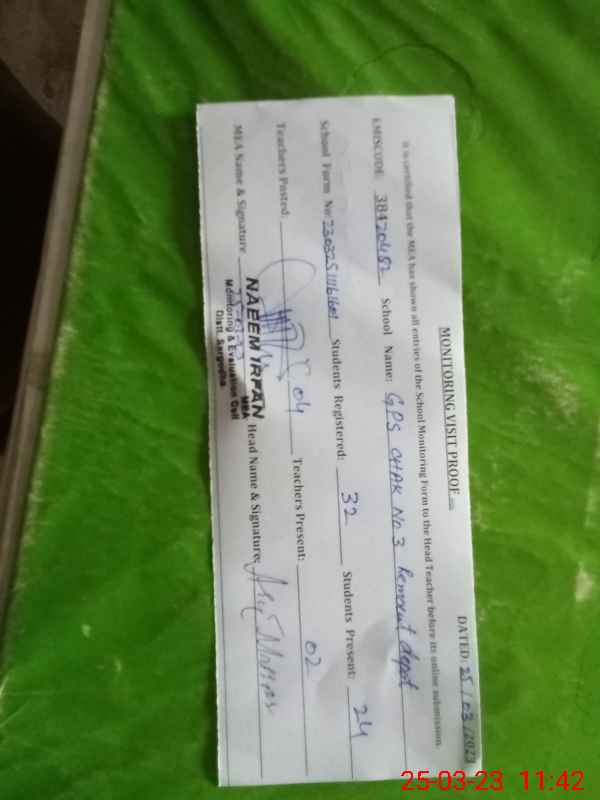 MONITORING VISIT PROOF
DATED: 25/03/2023
It is certified that the MEA has shown all entries of the School Monitoring Form to the Head Teacher before its online submission.
EMISCODE 38420482 School Name: GPS CHAK No.3 Remount depot
School Form No: Students Registered: 32 Students Present: 24
Teachers Posted: 04 Teachers Present: 02
MEA Name & Signature Head Name & Signature:
NAEEM IRFAN
MEA
Monitoring & Evaluation Cell
Distt. Sargodha
25-03-23 11:42